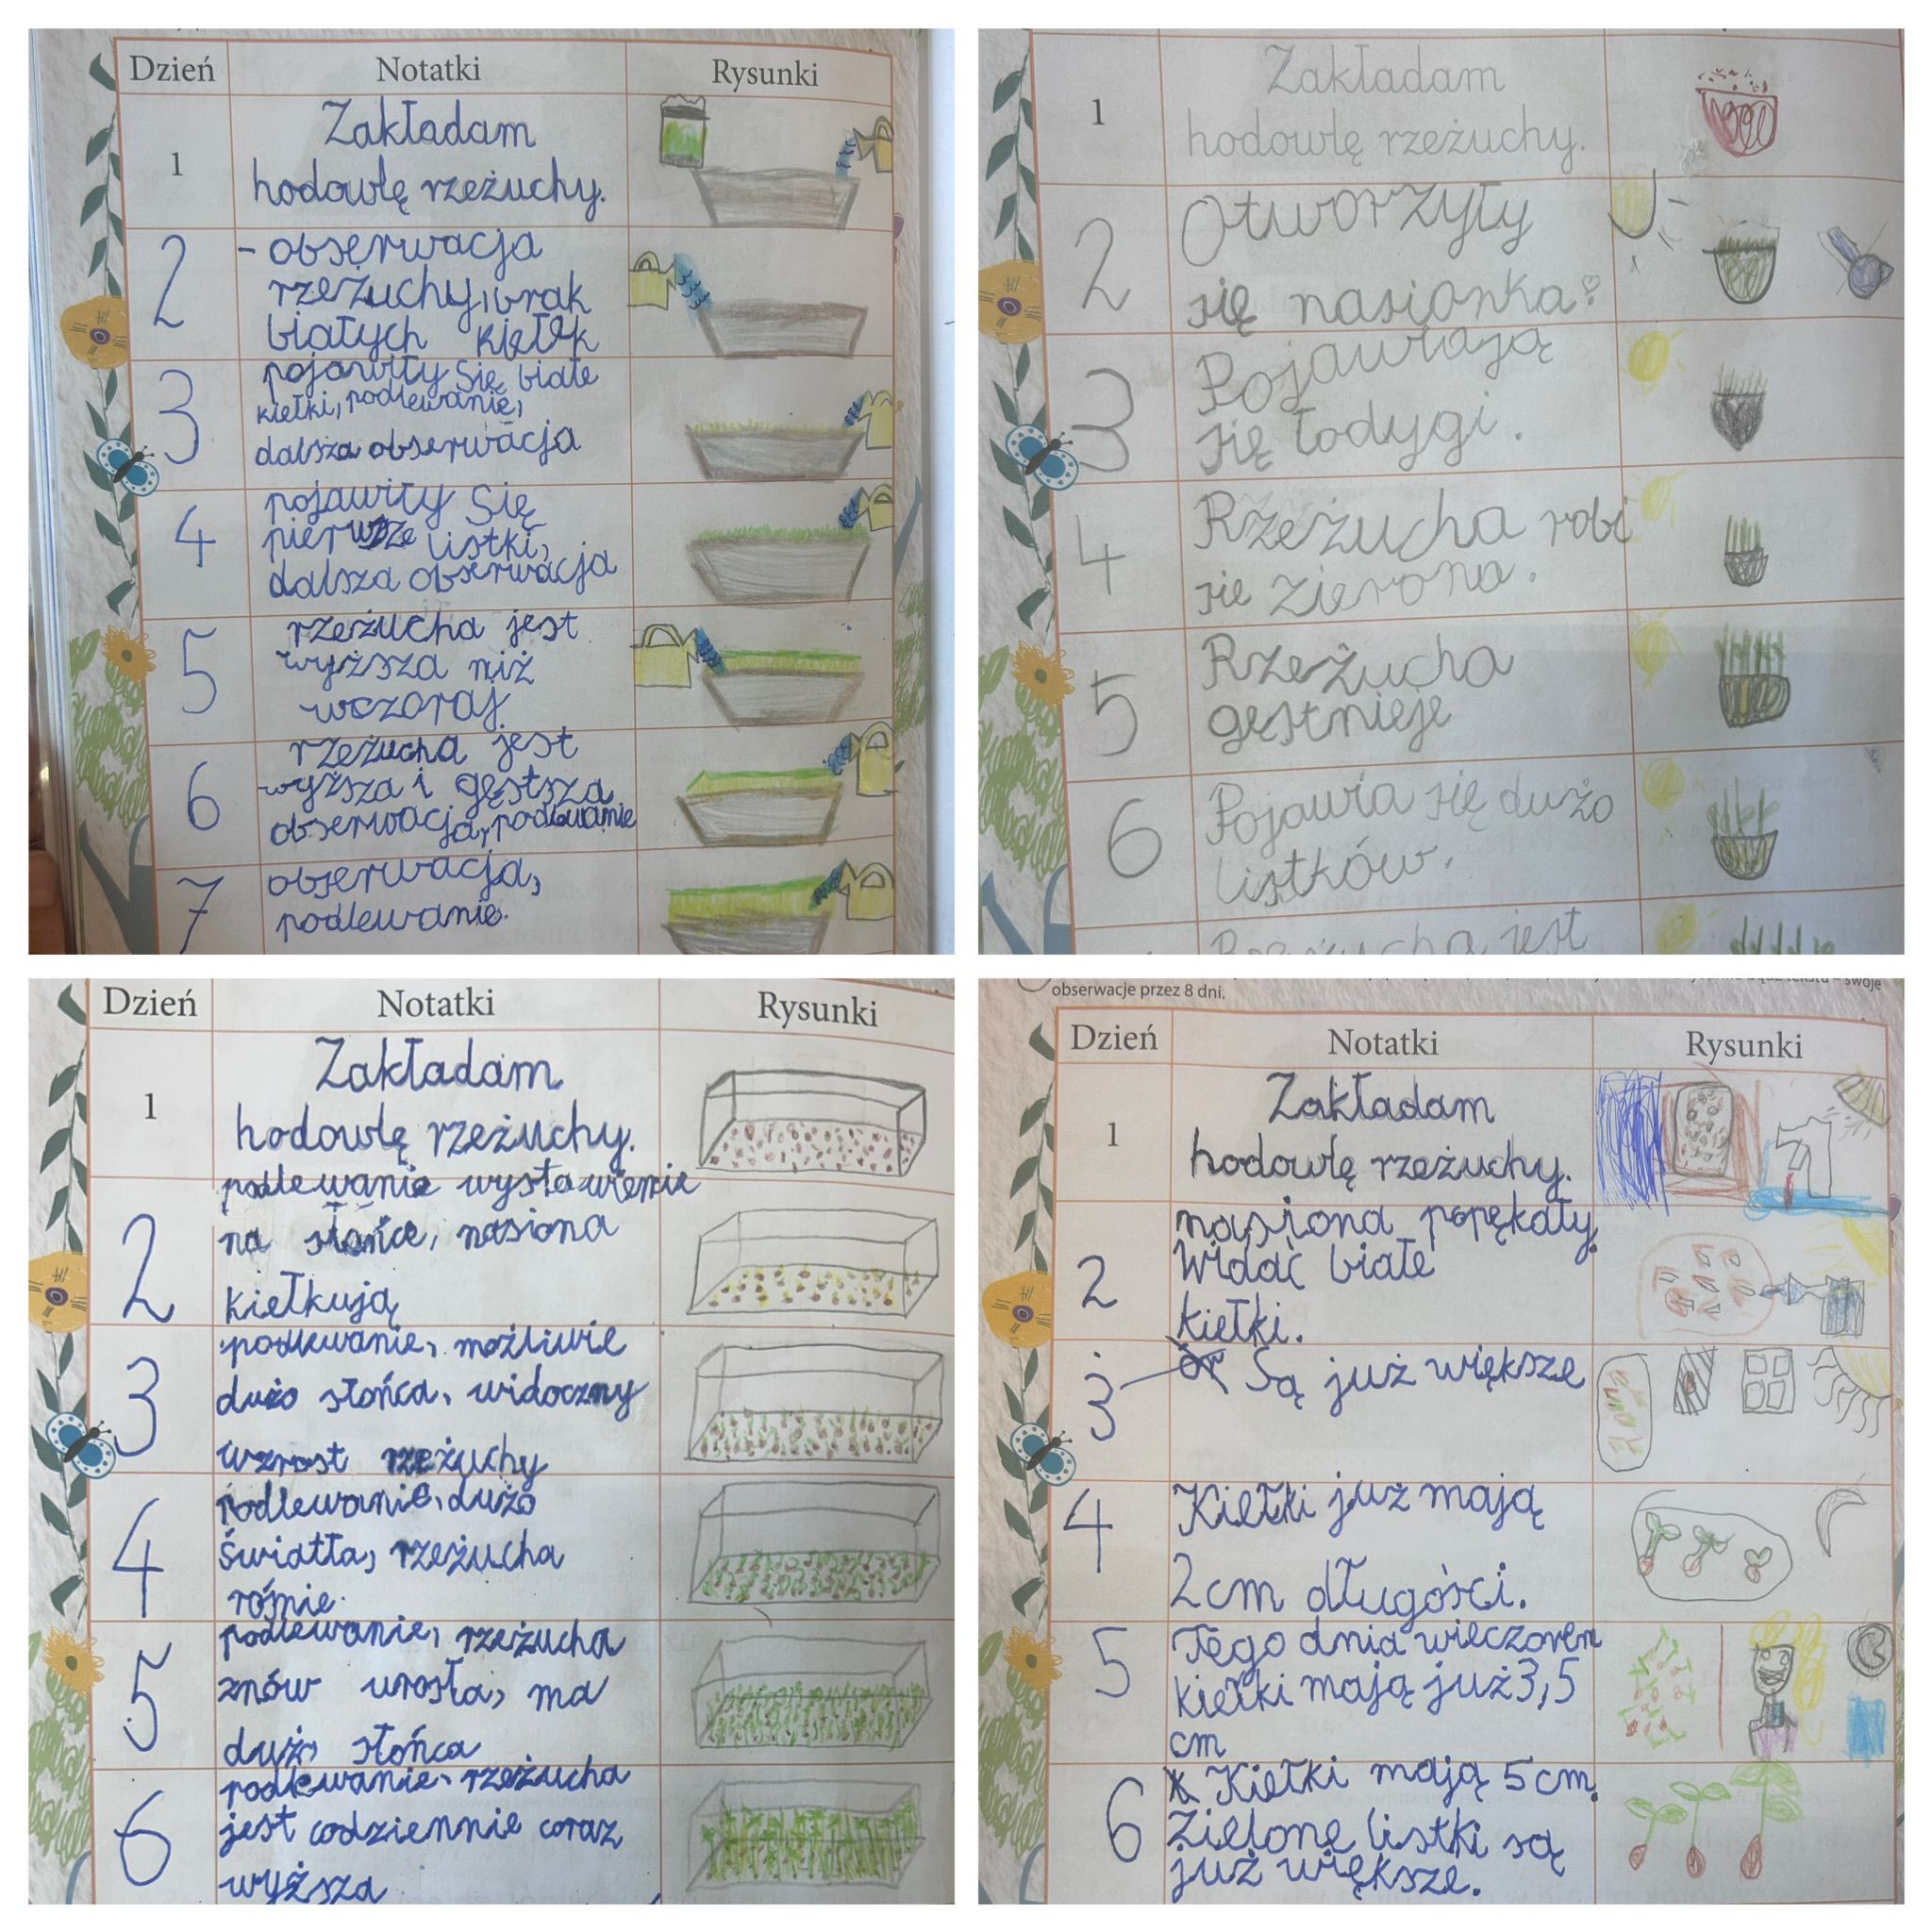 Dzień Notatki Rysunki
1
Zakładam
hodowlę rzeżuchy.
2
- obserwacja
rzeżuchy, brak
białych kiełek
3
pojawiły się białe
kiełki, podlewanie,
dalsza obserwacja
4
pojawiły się
pierwsze listki,
dalsza obserwacja
5
rzeżucha jest
wyższa niż
wczoraj
6
rzeżucha jest
wyższa i gęstsza
obserwacja, podlewanie
7
obserwacja,
podlewanie.
1
Zakładam
hodowlę rzeżuchy.
2
Otworzyły
się nasionka
3
Pojawiają
się łodygi.
4
Rzeżucha robi
sie zielona.
5
Rzeżucha
gęstnieje
6
Pojawia się dużo
listków.
Rzeżucha jest
Dzień Notatki Rysunki
1
Zakładam
hodowlę rzeżuchy.
2
podlewanie wystawienie
na słońce, nasiona
kiełkują
3
podlewanie, możliwie
dużo słońca, widoczny
wzrost rzeżuchy
4
podlewanie, dużo
światła, rzeżucha
rośnie.
5
podlewanie, rzeżucha
znów urosła, ma
dużo słońca
6
podlewanie, rzeżucha
jest codziennie coraz
wyższa
obserwacje przez 8 dni.
Dzień Notatki Rysunki
1
Zakładam
hodowlę rzeżuchy.
2
nasiona popękały.
Widać białe
kiełki.
3
Są już większe
4
Kiełki już mają
2cm długości.
5
Tego dnia wieczorem
kiełki mają już 3,5
cm
6
Kiełki mają 5cm.
Zielone listki są
już większe.